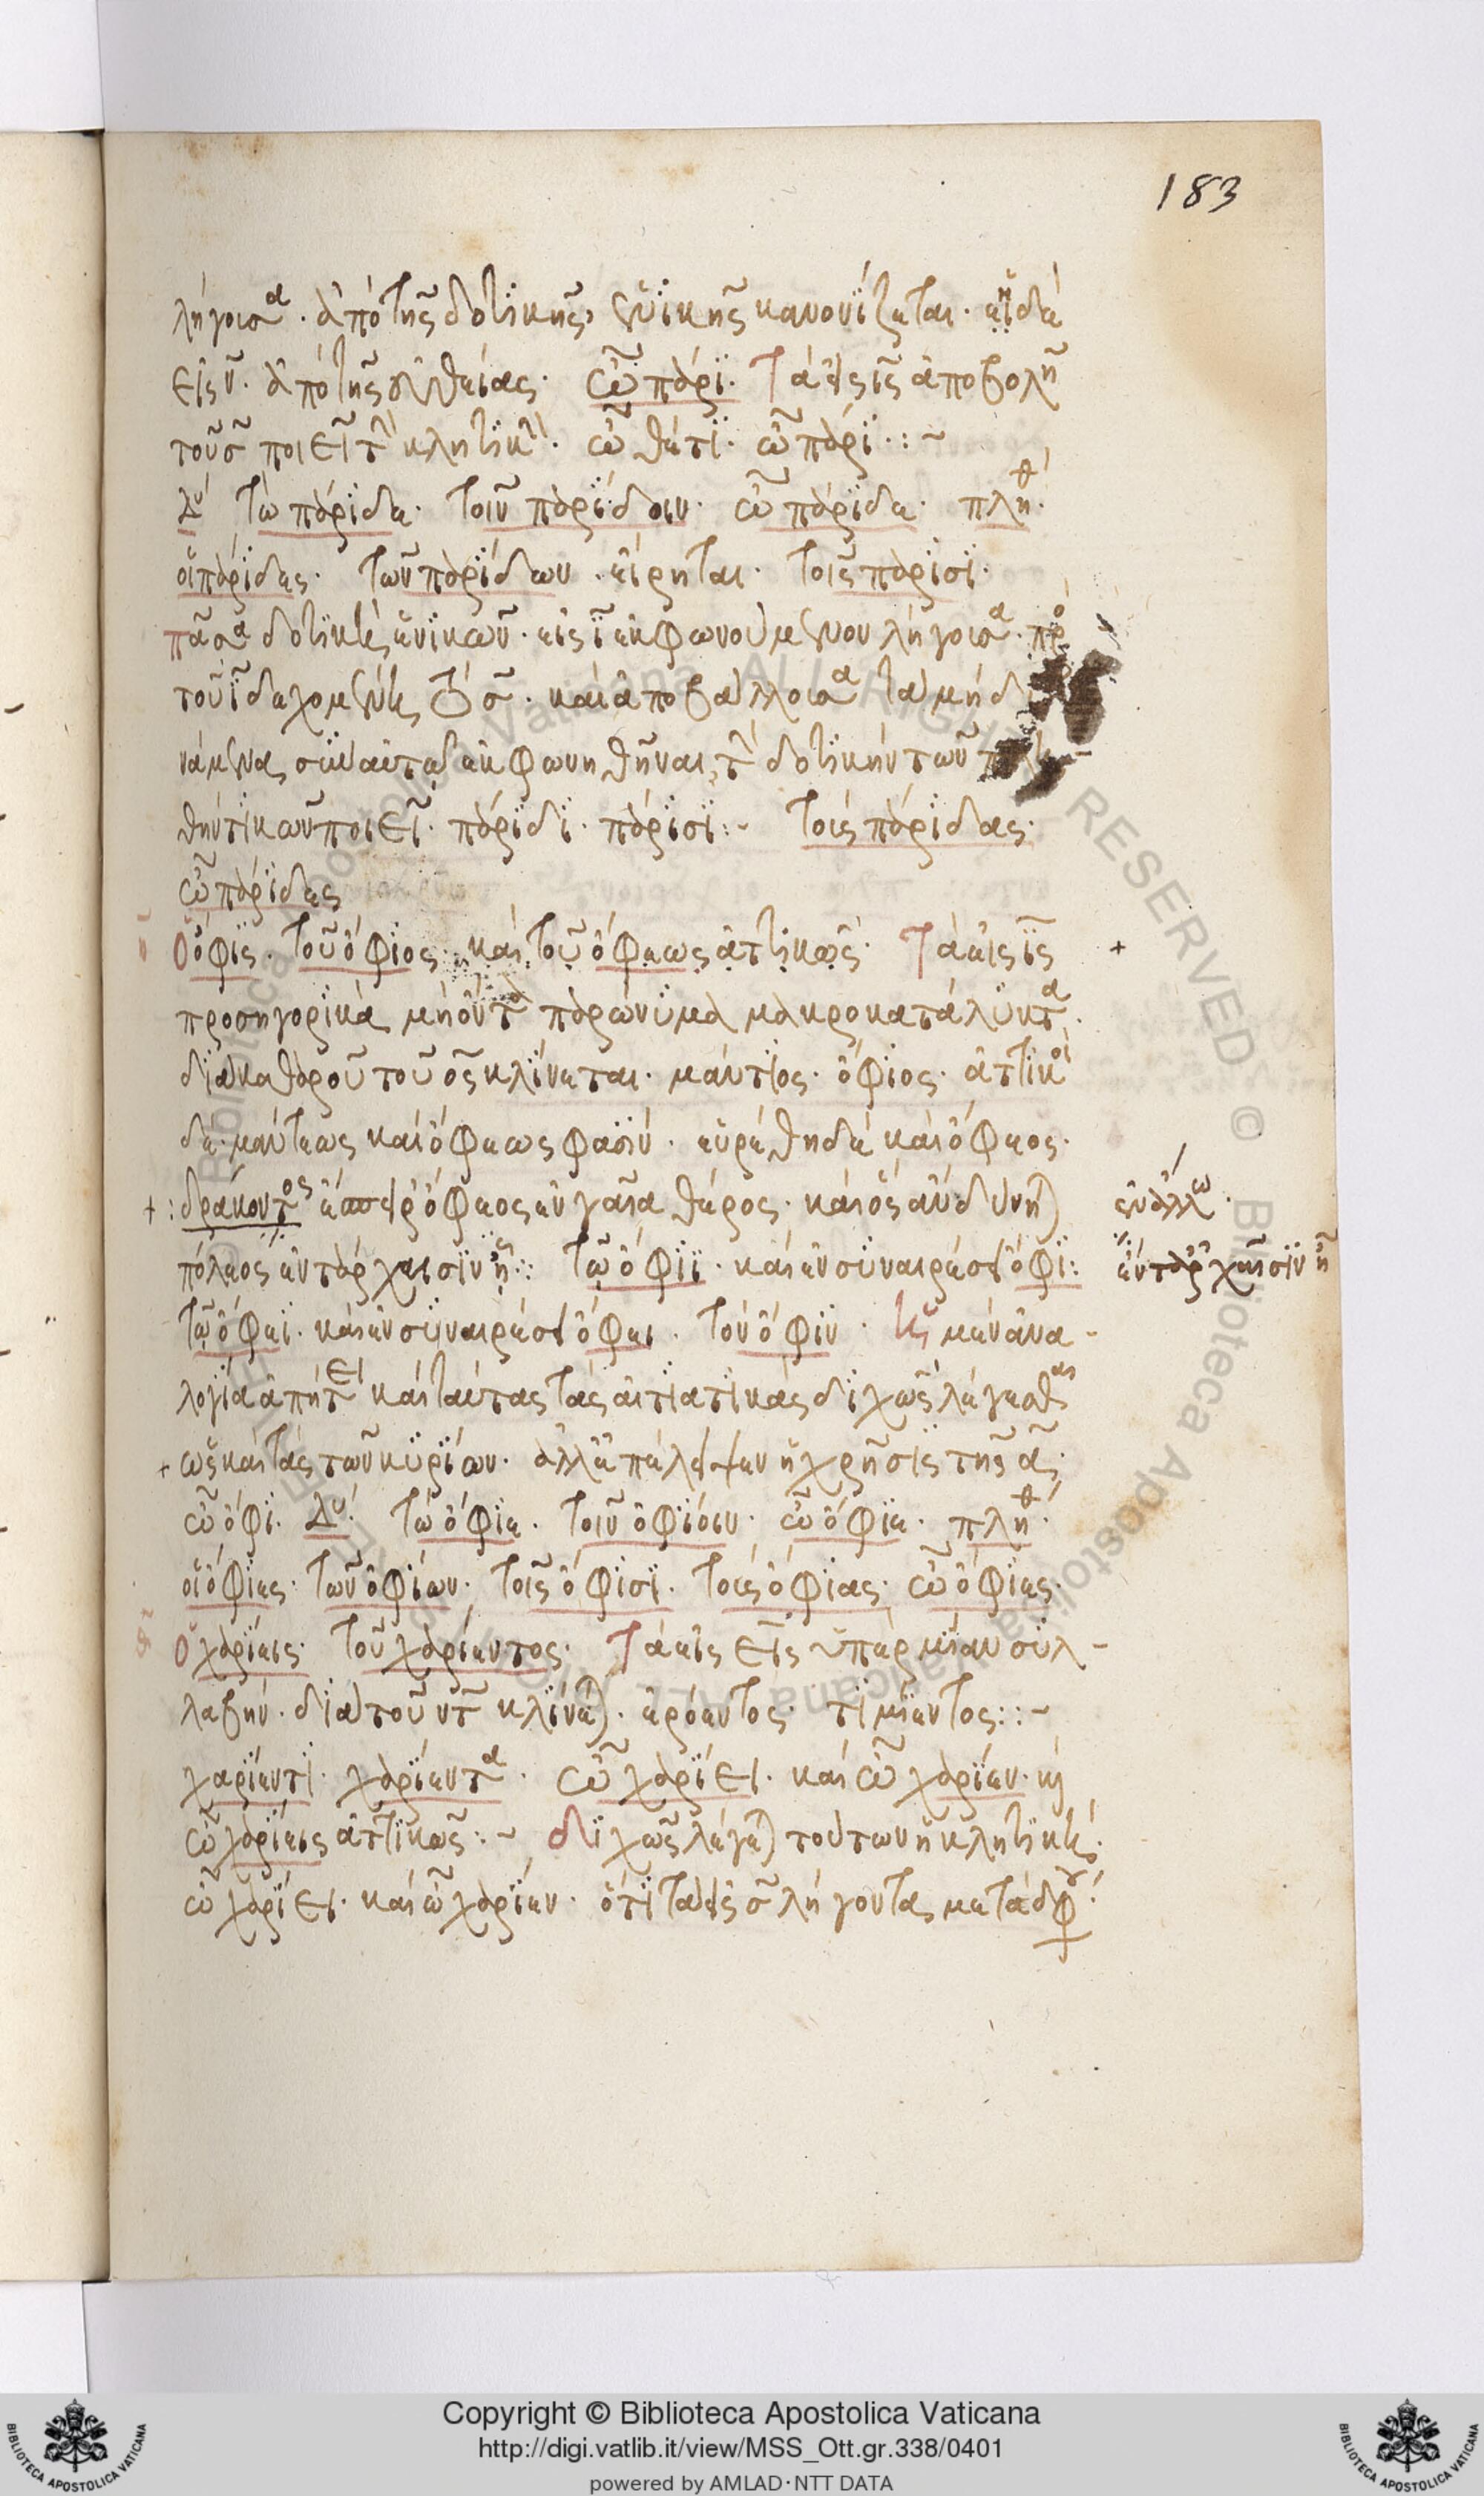 183
λήγουσα · ἀπὸ τῆς δοτικῆς ἑνικῆς κανονίζεται · ἡ δὲ
εἰς ν · ἀπὸ τῆς εὐθείας · ὦ πάρι · Τὰ εἰς ις ἀποβολῇ
τοῦ σ ποιεῖ τὴν κλητικήν · ὦ θέτι · ὦ πάρι : ~
Δυ τὼ πάριδε · τοῖν παρίδοιν · ὦ πάριδε · πλη
οἱ πάριδες · τῶν παρίδων · εἴρηται · τοῖς πάρισι ·
πᾶσα δοτικὴ ἑνικῶν · εἰς ι ἐκφωνούμενον λήγουσα · πρὸ
τοῦ ι δεχομένη τὸ σ · καὶ ἀποβάλλουσα τὰ μὴ δυ
νάμενα σὺν αὐτῷ ἐκφωνηθῆναι, τὴν δοτικὴν τῶν πλη-
θυντικῶν ποιεῖ · πάριδι · πάρισι : ~ τοὺς πάριδας ·
ὦ πάριδες
Ὁ ὄφις · τοῦ ὄφιος · καὶ τοῦ ὄφεως ἀττικῶς · Τὰ εἰς ις +
προσηγορικὰ μὴ ὄντα παρώνυμα μακροκατάληκτα ·
διὰ καθαροῦ τοῦ ος κλίνεται · μάντιος · ὄφιος · ἀττικοὶ
δὲ μάντεως καὶ ὄφεως φασίν · εὑρέθη δὲ καὶ ὄφεος ·
+ : δράκοντος ὄφεος ἐν γαῖα θέρος · καὶ ὃς ἀνδύνη
πόλεος ἐν ταρχαισιν ἦ : τῷ ὄφιϊ · καὶ ἐν συναιρέσει ὄφι :
τῷ ὄφεϊ · καὶ ἐν συναιρέσει ὄφει · τὸν ὄφιν · ἡ μὲν ἀνα -
λογία ἀπῄτει καὶ ταύτας τὰς αἰτιατικὰς διχῶς λέγεσθαι
+ ὡς καὶ τὰς τῶν κυρίων · ἀλλ' ἐπέλειψεν ἡ χρῆσις τῆς α ·
ὦ ὄφι · Δυ · τὼ ὄφιε · τοῖν ὀφίοιν · ὦ ὄφιε · πλη ·
οἱ ὄφιες · τῶν ὀφίων · τοῖς ὄφισι · τοὺς ὄφιας · ὦ ὄφιες ·
Ὁ χαρίεις · τοῦ χαρίεντος · Τὰ εἰς εις ὑπὲρ μίαν συλ -
λαβὴν · διὰ τοῦ ντ κλίνεται · ἐρόεντος · τιμίεντος : : ~
χαρίεντι · χαρίεντα · ὦ χαρίει · καὶ ὦ χαρίεν · καὶ
ὦ χαρίεις ἀττικῶς : ~ διχῶς λέγεται τούτων ἡ κλητική ·
ὦ χαρίει · καὶ ὦ χαρίεν · ὅτι τὰ εἰς σ λήγοντα μετὰ διφ
ἐν ἄλλῳ ·
ἐν ταρχαισιν ἦ
Copyright © Biblioteca Apostolica Vaticana
http://digi.vatlib.it/view/MSS_Ott.gr.338/0401
powered by AMLAD·NTT DATA